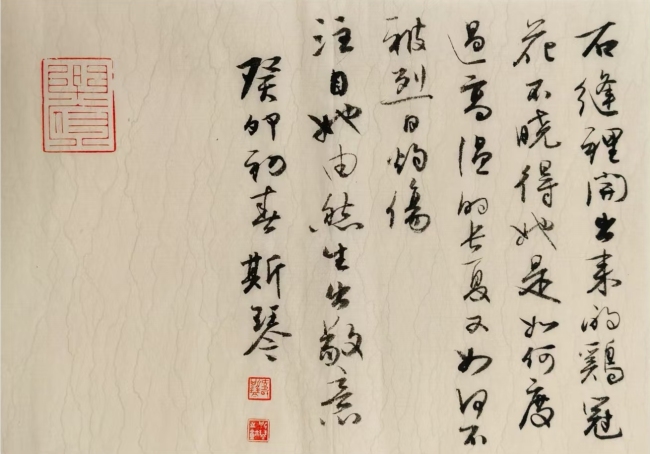 石缝裡開出来的鷄冠
花不晓得她是如何度
過高温的长夏又如何不
被烈日灼傷
注目她由然生出敬意
癸卯初春 斯琴